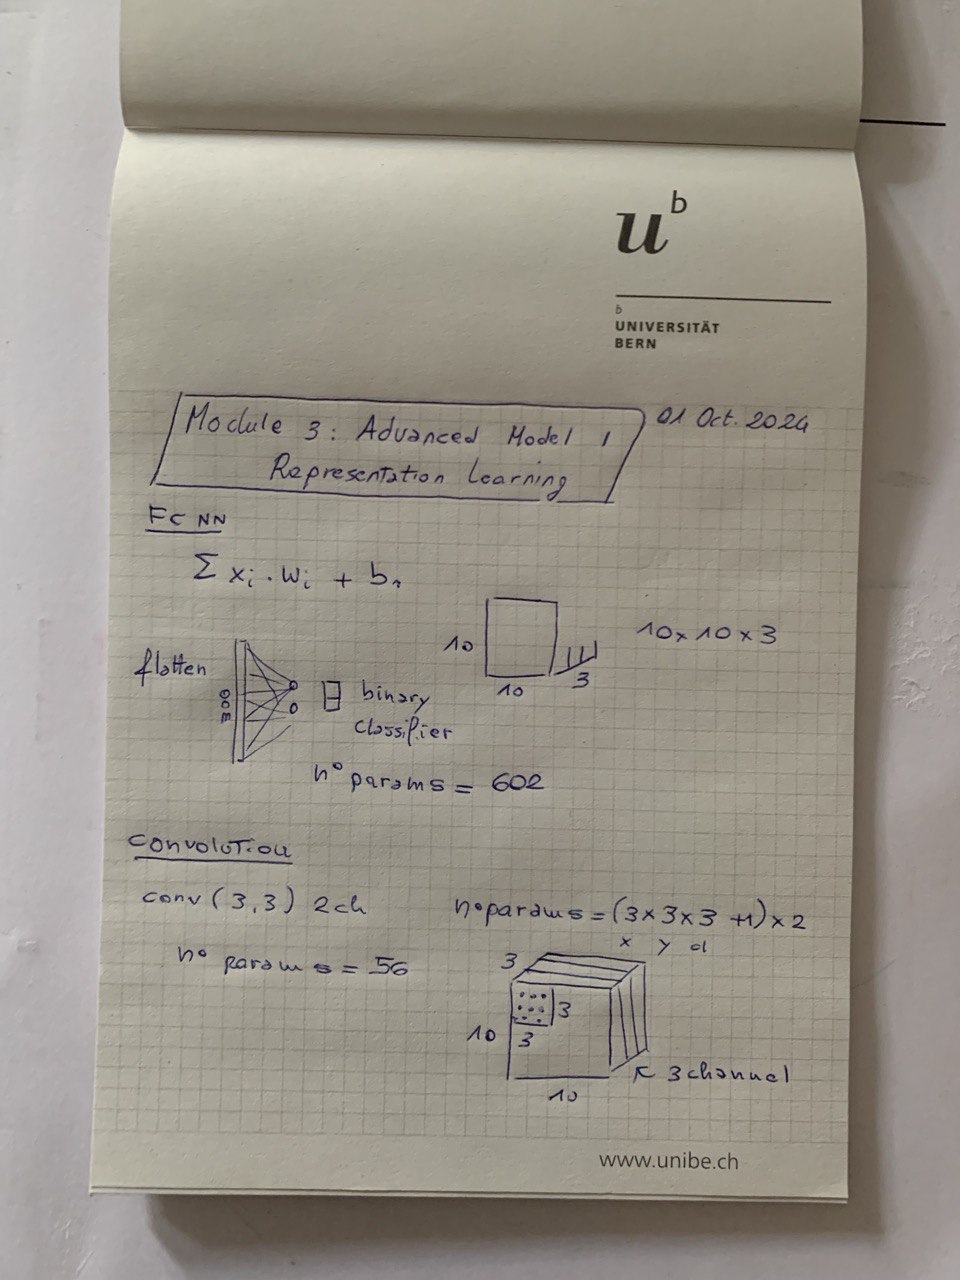 u^b
b
UNIVERSITÄT
BERN
01 Oct. 2024
Module 3: Advanced Model,
Representation Learning
FC NN
Σ xᵢ . wᵢ + b₁
10
10
3
10 x 10 x 3
flatten
300
binary
classifier
n° params = 602
Convolution
conv (3,3) 2ch
n° params = (3x3x3 +1) x 2
x y d
n° params = 56
3
3
3
10
10
3 channel
www.unibe.ch